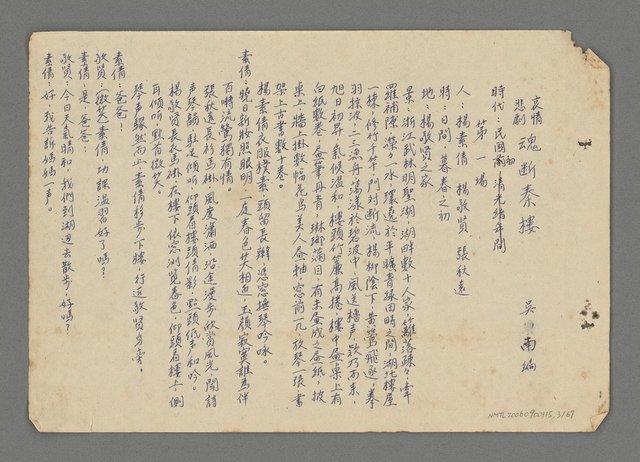 哀情
悲劇 魂斷秦樓 吳南編
時代：民國初 清光緒年間
第一場
人：楊素倩 楊敬賢 張秋遠
時：日間，暮春之初
地：楊敬賢之家
景：浙江武林明聖湖，湖畔數十人家，籬落疎々，牽
羅補隙，濼々水，環遶於平曠青疇田畦之間，湖北樓屋
一棟，修竹千竿，門對斷流，楊柳陰下，黃鶯飛逐，拳
羽掠波，二三漁舟蕩漾於碧波中，風送櫓聲，欸乃而來，
旭日初昇，氣候溫和，樓頭竹簾高捲，樓中畫桌上有
白紙數卷，金葉丹青，琳瑯滿目，有未畫成之畫紙，披
桌上，牆上掛數幅花鳥美人畫軸，窓前一几，放琴一張，書
架上古書數十卷。
楊素倩衣服樸素，頭留長辮，憑窓撫琴吟咏。
素倩：曉日新妝照眼明 一庭春色笑相迎，玉顏寂寞誰為伴
百囀流鶯獨有情。
張秋遠長衫馬掛，風度瀟洒，沿途漫步，欣賞風光，聞詩
声琴韻，駐足傾听，仰頭看樓頭倩影，點頭低声和吟。
楊敬賢長衣馬掛，在樓下依窓浏覽春色，仰頭看樓上，側
耳傾听，點首微笑。
琴声驟然而止，素倩移步下樓，行近敬賢身旁。
素倩：爸爸！
敬賢：（微笑）素倩，功課溫習好了嗎？
素倩：是，爸爸：
敬賢：今日天氣晴和，我們到湖边去散步，好嗎？
素倩：好，我告訴媽媽一声。
NMTL20060900115, 3/67